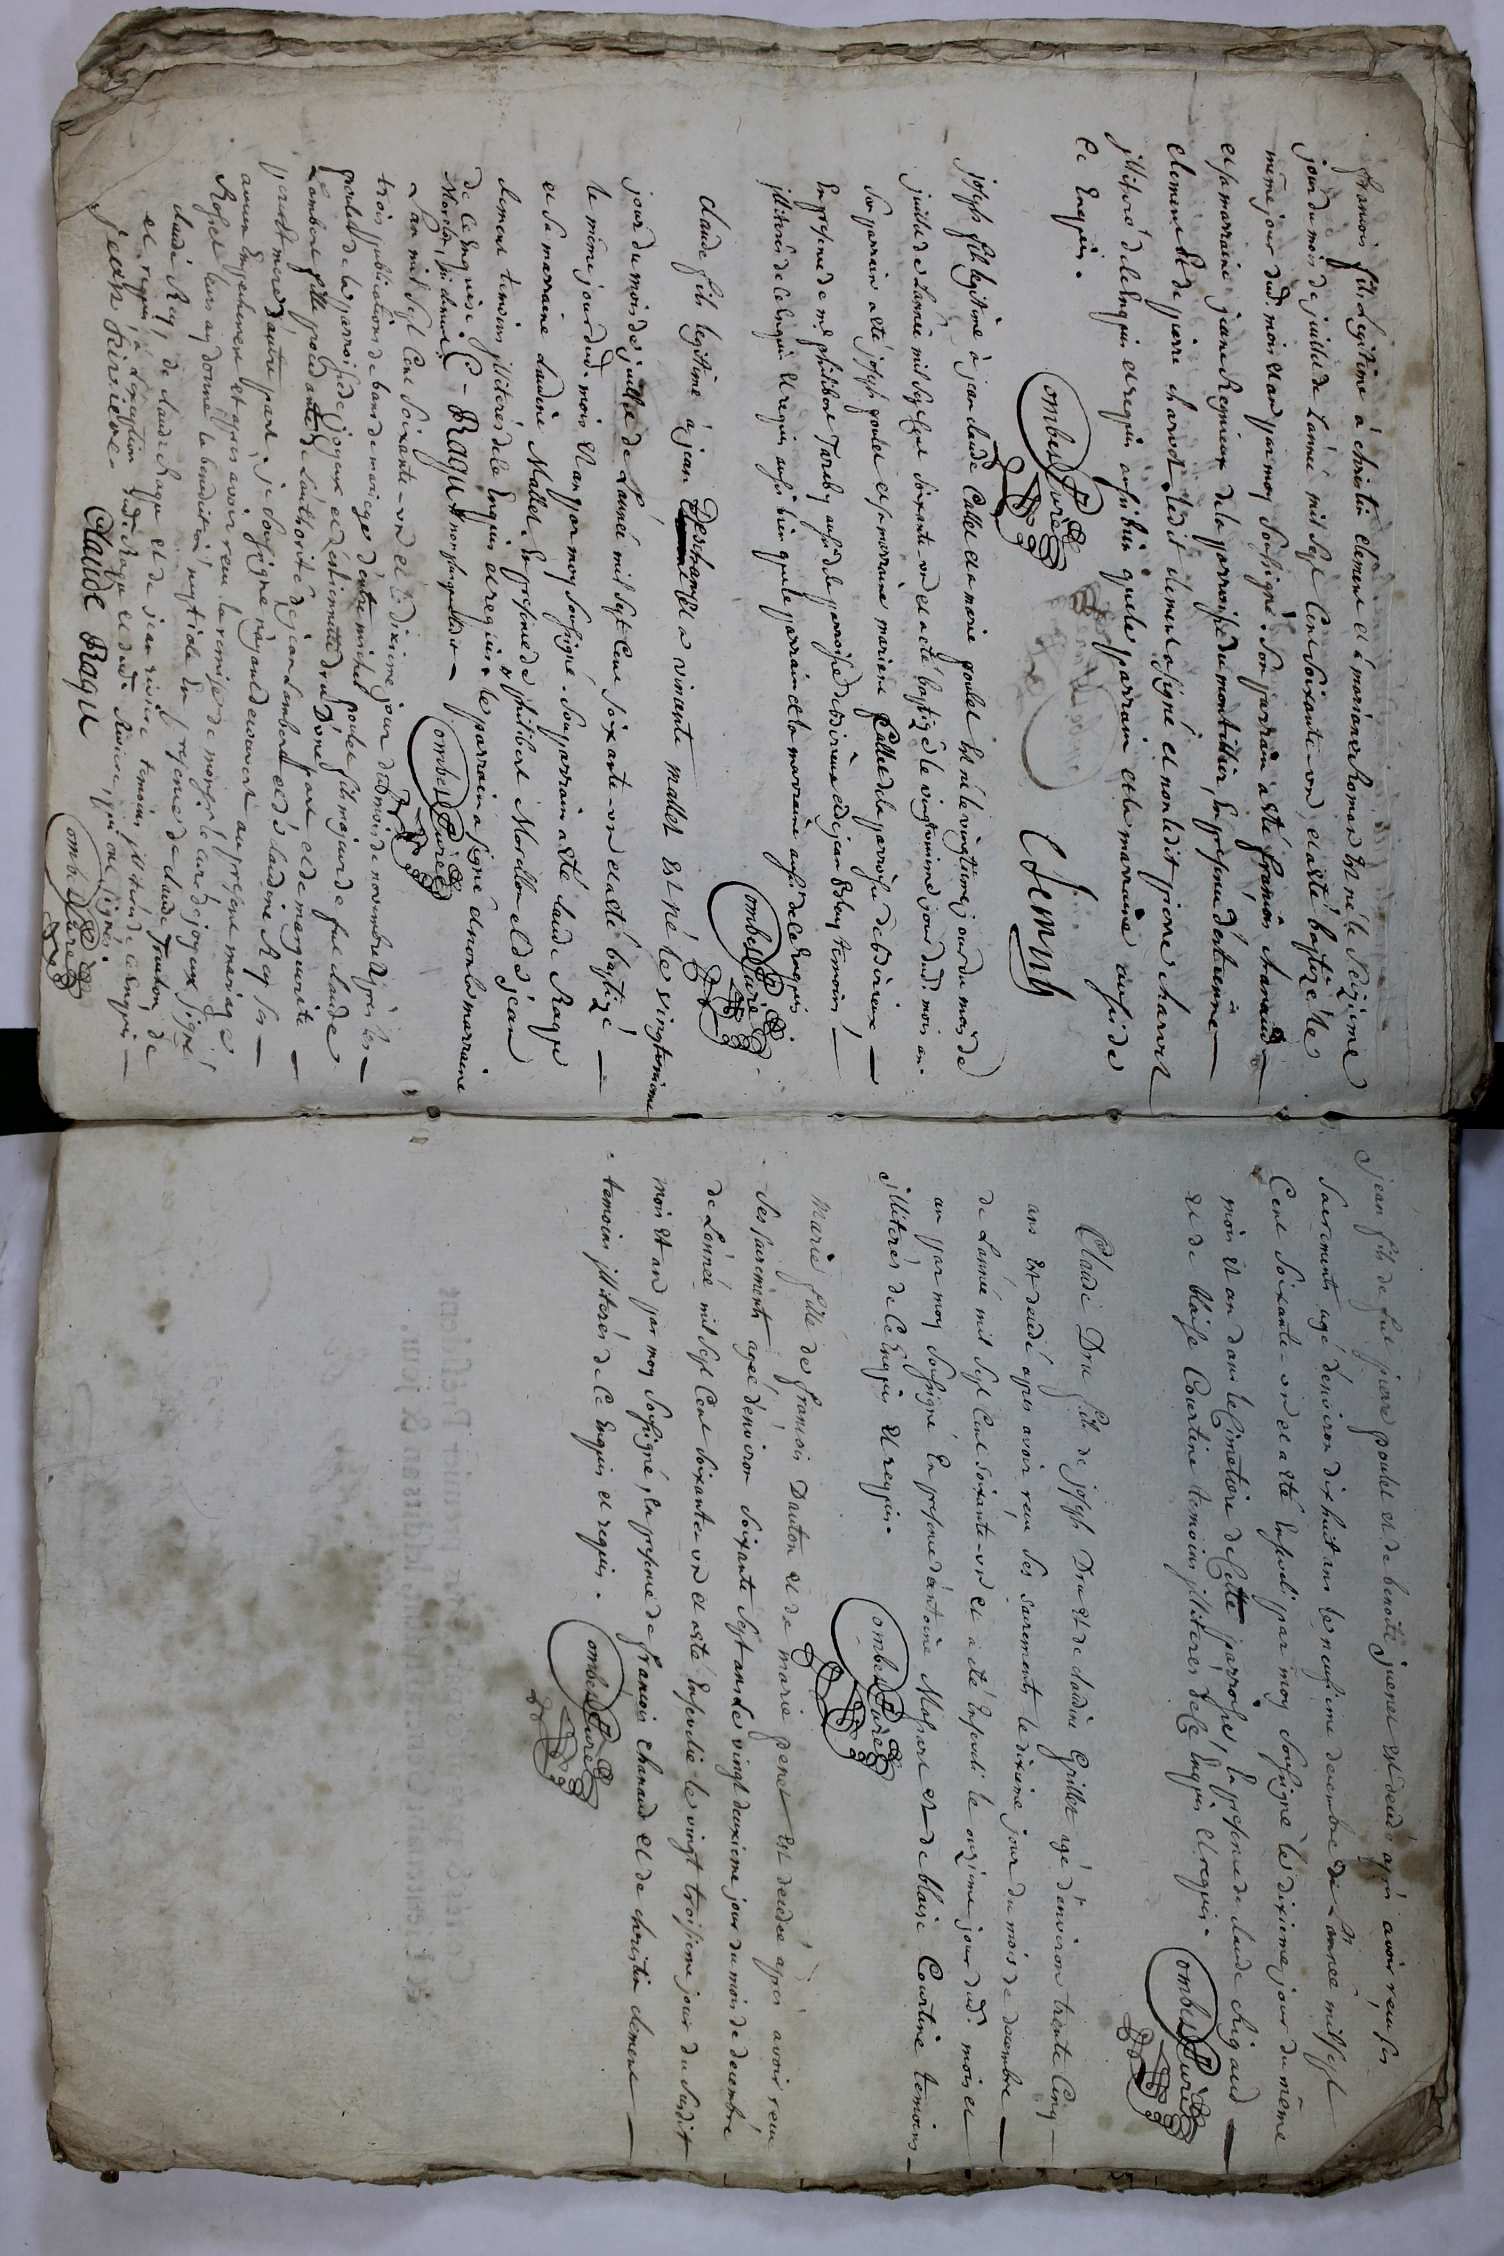 françois fils Légitime à christin clement et à mariane Roman Est né le seizieme
jour du mois de juillet de L'année mil sept Cent soixante-un, et a esté baptizé le
même jour dud. mois et an par moy soussigné. son parrain a esté françois chanaud
et sa marraine jeane Regnieux de la parroisse du montillier, En presence d'estienne
clement Et de pierre charvet. Ledit clement a signé et non ledit pierre charvet
jlliteré de le Enquis et requis aussi bien que le parrain et la marraine aussi de
Ce Enquis.
Combet Curé
Clemnt
joseph fils legitime à jean claude Callet et a marie goulet Est né le vingtieme jour du mois de
juillet de L'année mil sept cent soixante-un et a eté baptizé le vingtunieme jour dud. mois an.
Son parrain a eté joseph goulet et sa marraine mariane Callet de la parroisse de bdirieux
En presence de me. philibert Tardy aussi de la parroisse de bdirieux et de jean Boley temoins
jlliterés de Ce Enquis et requis aussi bien que le parrain et la marraine aussi de Ce Enquis
Combet Curé
claude fils legitime à jean Deschamp Et a vincente mallet Est né le vingtunieme
jour du mois de juillet de L'année mil sept Cent soixante-un et a esté baptizé
le même jour dud. mois Et an par moy soussigné. Son parrain a eté claude Ragu
et sa marraine claudine Mallet. En presence de philibert Morellon et de jean
clement temoins jlliterés de Ce Enquis et requis. le parrain a signé et non la marraine
de Ce Enquise. C - RAGU non plus que ledit
Morellon, ni clement
Combet Curé
L'an mil sept Cent soixante-un et le dixieme jour du mois de novembre Après les
trois publications de bans de mariage d'entre michel goulet fils majeur de feu claude
goulet de la parroisse de joyeux et d'estiennette dru D'une part et de marguerite
Lambert fille procedante de L'authorité de jean Lambert et de claudine Rey ses
pere et mere D'autre part, je soussigné n'ayant decouvert au present mariage
aucun Empechement et apres avoir reçu la remise de monsr. le curé de joyeux signé
Roset leur ay donné la benediction nuptiale En presence de claude Trunbon, de
claude Rey, de claude Ragu et de jean riviere temoins jlliterés de ce Enquis
et requis à L'exception dudit Ragu et dudit Riviere, qui ont signés.
jean Riviere Claude RAGU
Combet Curé
jean fils de feu pierre goulet et de benoite juenet est decedé apres avoir reçu ses
sacrements agé d'environ dixhuit ans le neufvieme decembre de L'année mil sept
Cent soixante-un et a eté Enseveli par moy soussigné le dixieme jour du même
mois et an dans le Cimetiere de Cette parroisse, En presence de claude chigaud
et de blaise Courtine temoins jlliterés de Ce Enquis et requis.
Combet Curé
Claude Dru fils de joseph Dru et de claudine Grillet agé d'environ trente Cinq
ans Est decedé apres avoir reçu ses sacrements le dixieme jour du mois de decembre
de L'année mil sept Cent soixante-un et a eté Enseveli le onzieme jour dud. mois et
an par moy soussigné En presence d'antoine Massart et de blaise Courtine temoins
jlliterés de Ce Enquis et requis.
Combet Curé
Marie fille de françois Dauton et de marie genet Est decedée après avoir reçu
ses sacrements agée d'environ soixante sept ans le vingt deuxieme jour du mois de decembre
de L'année mil sept Cent soixante-un et a esté Ensevelie le vingt troisieme jour du susdit
mois Et an par moy soussigné, En presence de françois chanaud et de christin clement
temoins jlliterés de Ce Enquis et requis.
Combet Curé